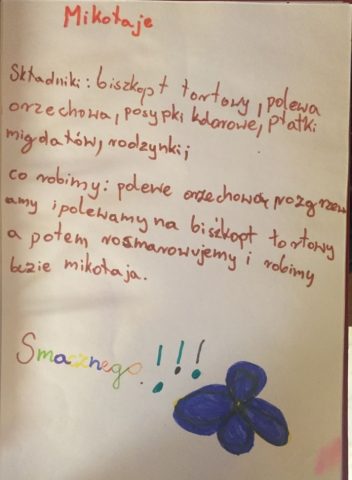 Mikołaje
Składniki: biszkopt tortowy, polewa
orzechowa, posypki kolorowe, płatki
migdałów, rodzynki;
co robimy: polewe orzechową rozgrzew
amy i polewamy na biszkopt tortowy
a potem rosmarowujemy i robimy
bezie mikołaja.
Smacznego.!!!